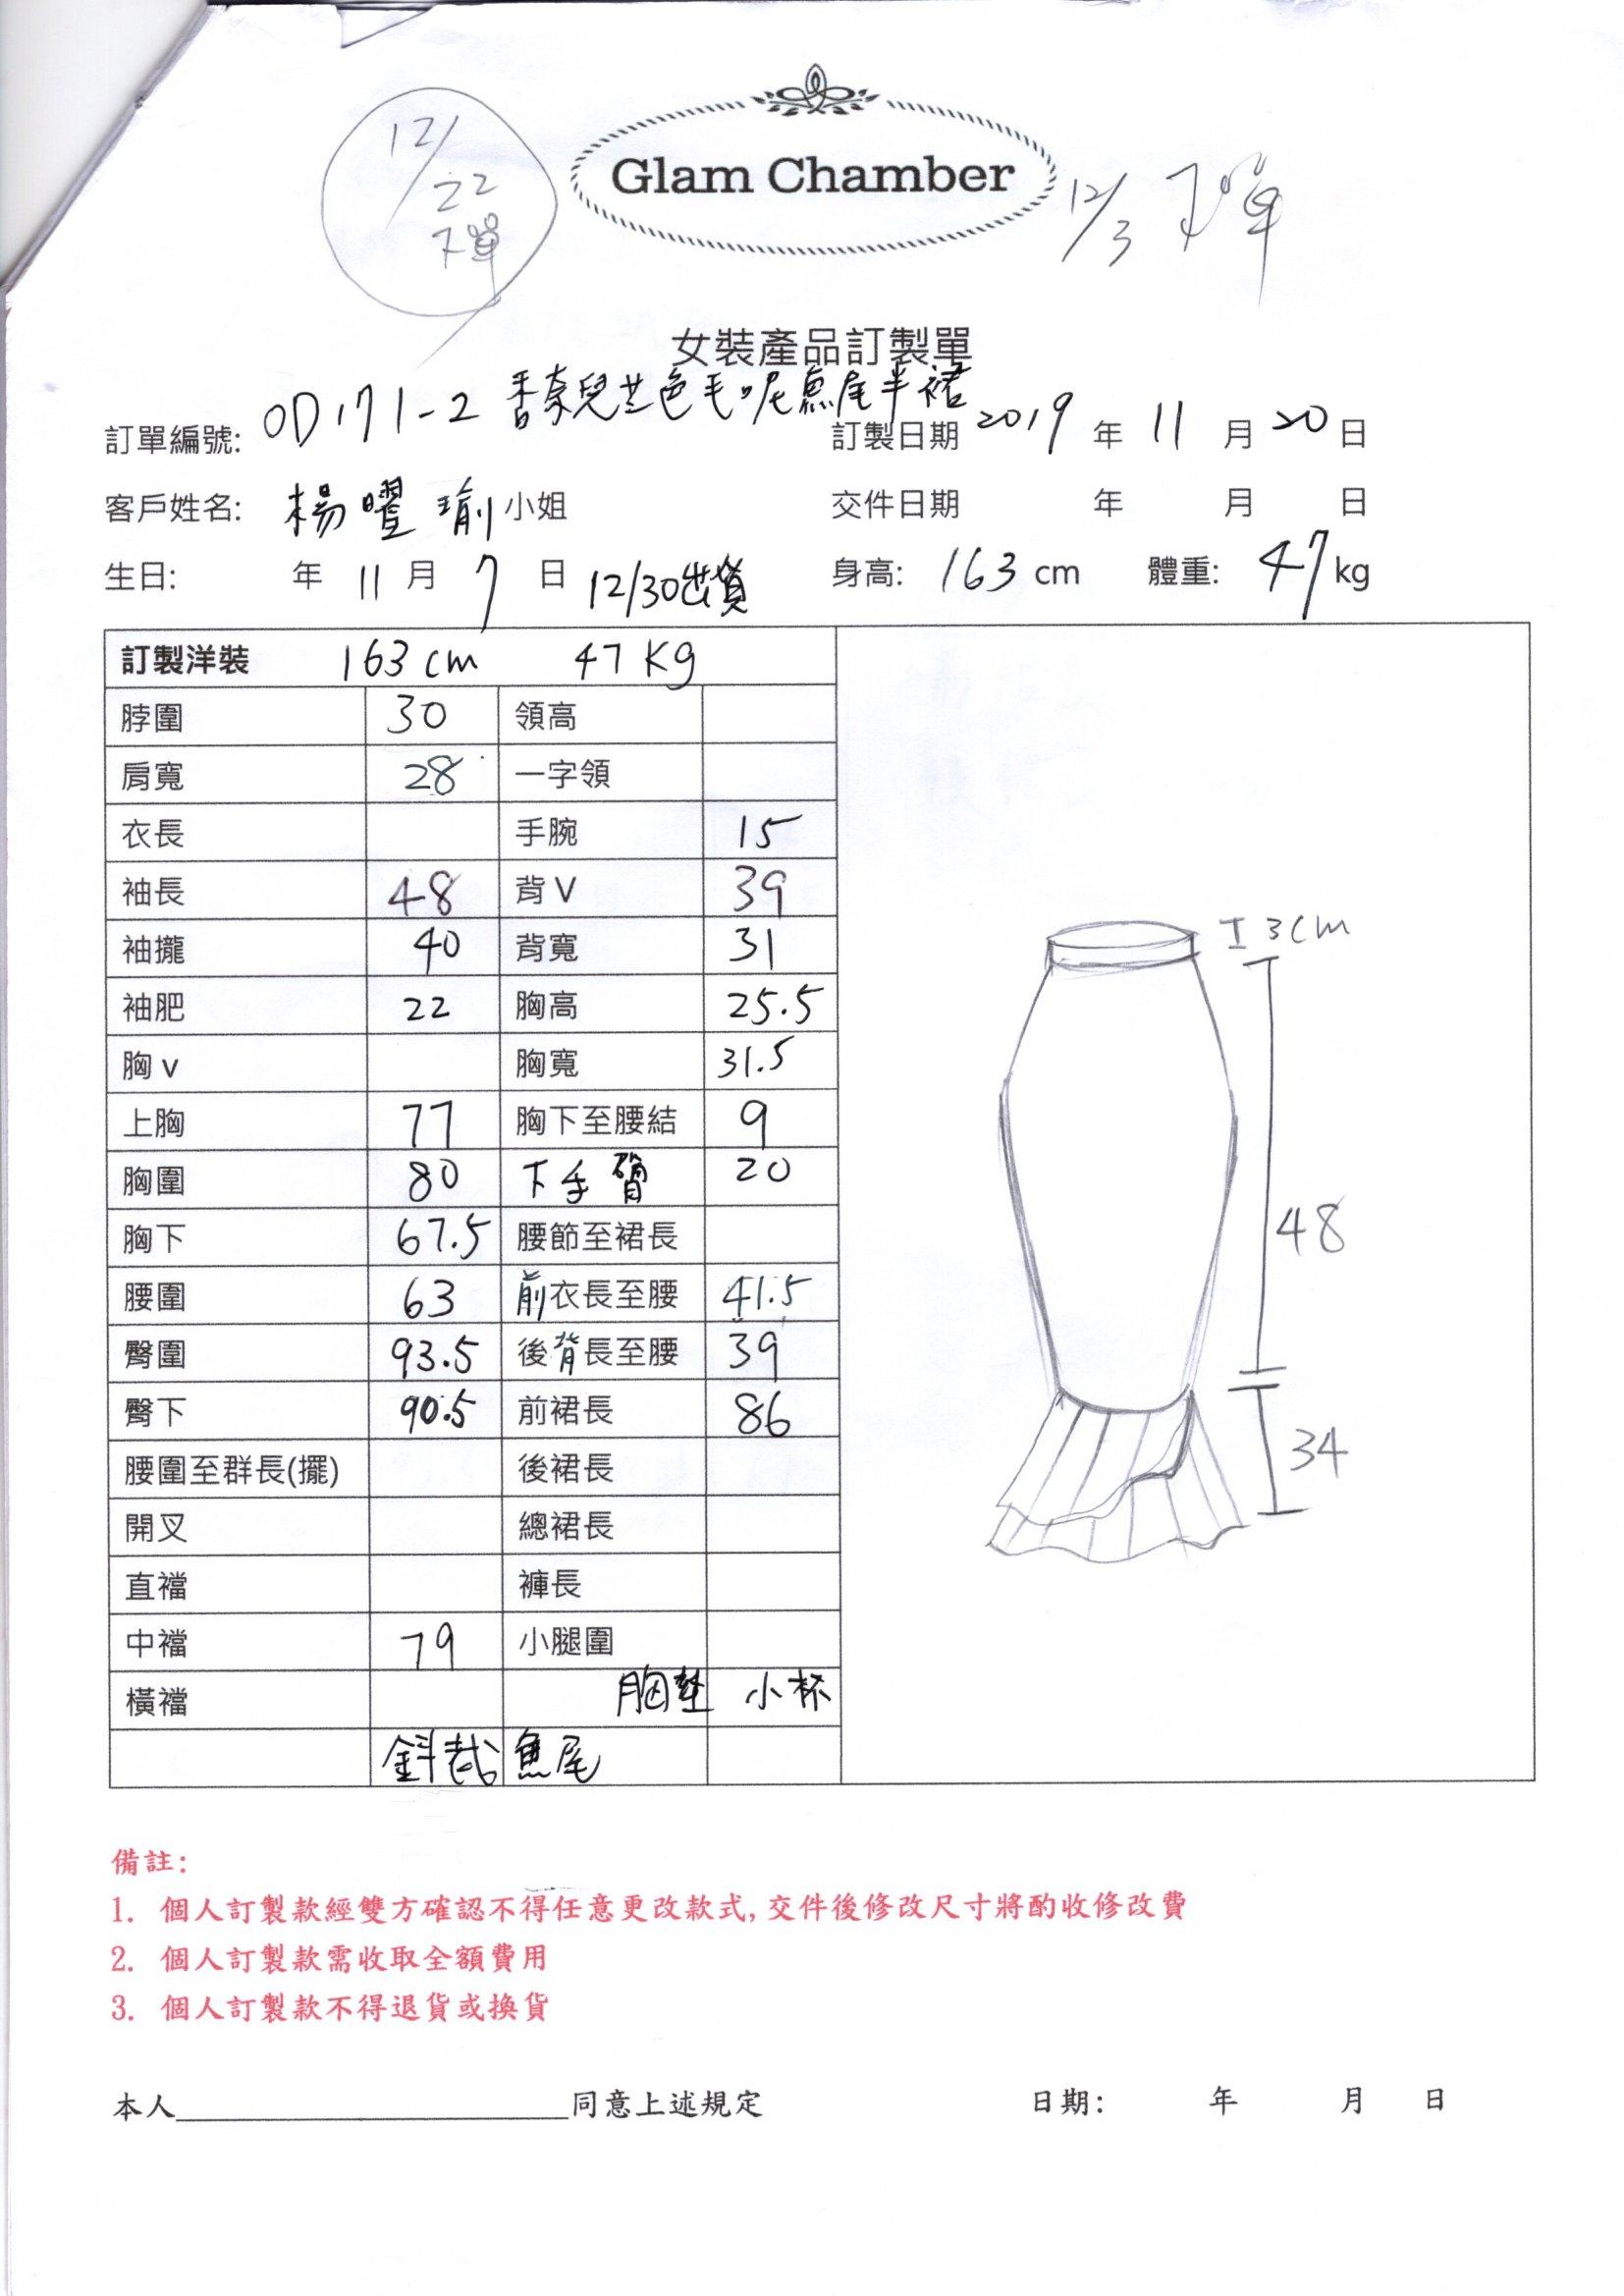 12/22
下單
Glam Chamber
12/3 下單
女裝產品訂製單
訂單編號: OD171-2 香奈兒芷色毛呢魚尾半裙 訂製日期 2019 年 11 月 20 日
客戶姓名: 楊曜瑜 小姐 交件日期 年 月 日
生日: 年 11 月 7 日 12/30出貨 身高: 163 cm 體重: 47 kg
訂製洋裝 163 cm 47 Kg
脖圍 30 領高
肩寬 28 一字領
衣長 手腕 15
袖長 48 背 V 39
袖攏 40 背寬 31
袖肥 22 胸高 25.5
胸 v 胸寬 31.5
上胸 77 胸下至腰結 9
胸圍 80 下手臂 20
胸下 67.5 腰節至裙長
腰圍 63 前衣長至腰 41.5
臀圍 93.5 後背長至腰 39
臀下 90.5 前裙長 86
腰圍至群長(擺) 後裙長
開叉 總裙長
直襠 褲長
中襠 79 小腿圍
橫襠 胸墊 小杯
斜裁魚尾
3cm
48
34
備註:
1. 個人訂製款經雙方確認不得任意更改款式, 交件後修改尺寸將酌收修改費
2. 個人訂製款需收取全額費用
3. 個人訂製款不得退貨或換貨
本人 同意上述規定 日期: 年 月 日